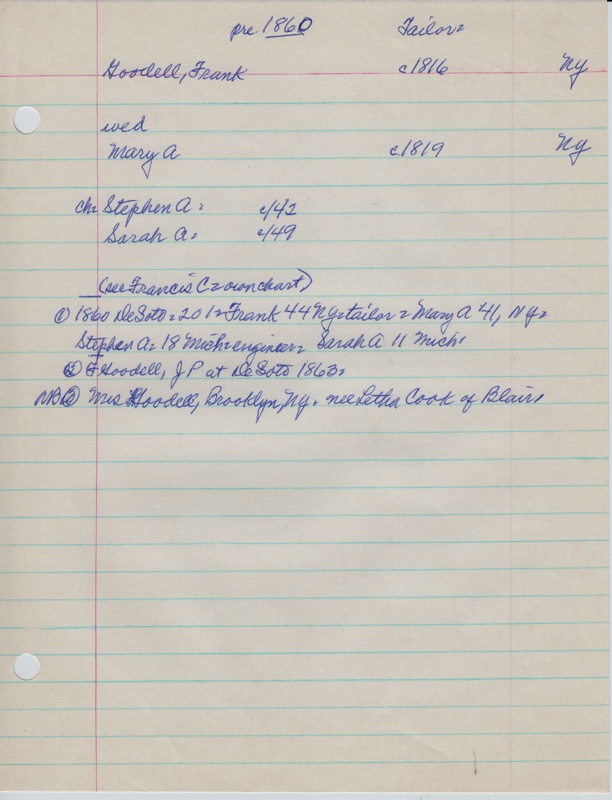 pre 1860 Tailor=
Goodell, Frank c1816 Ny
wed
Mary A c.1819 Ny
ch= Stephen A= c/42
Sarah A= c/49
(see Francis C= own chart)
① 1860 DeSoto=201=Frank 44 Ny=tailor= Mary A 41, Ny=
Stephen A= 18 Mich=engineer= Sarah A 11 Mich=
② Goodell, JP at DeSoto 1863=
NB Mrs Goodell, Brooklyn, Ny= nee Letha Cook of Blair=